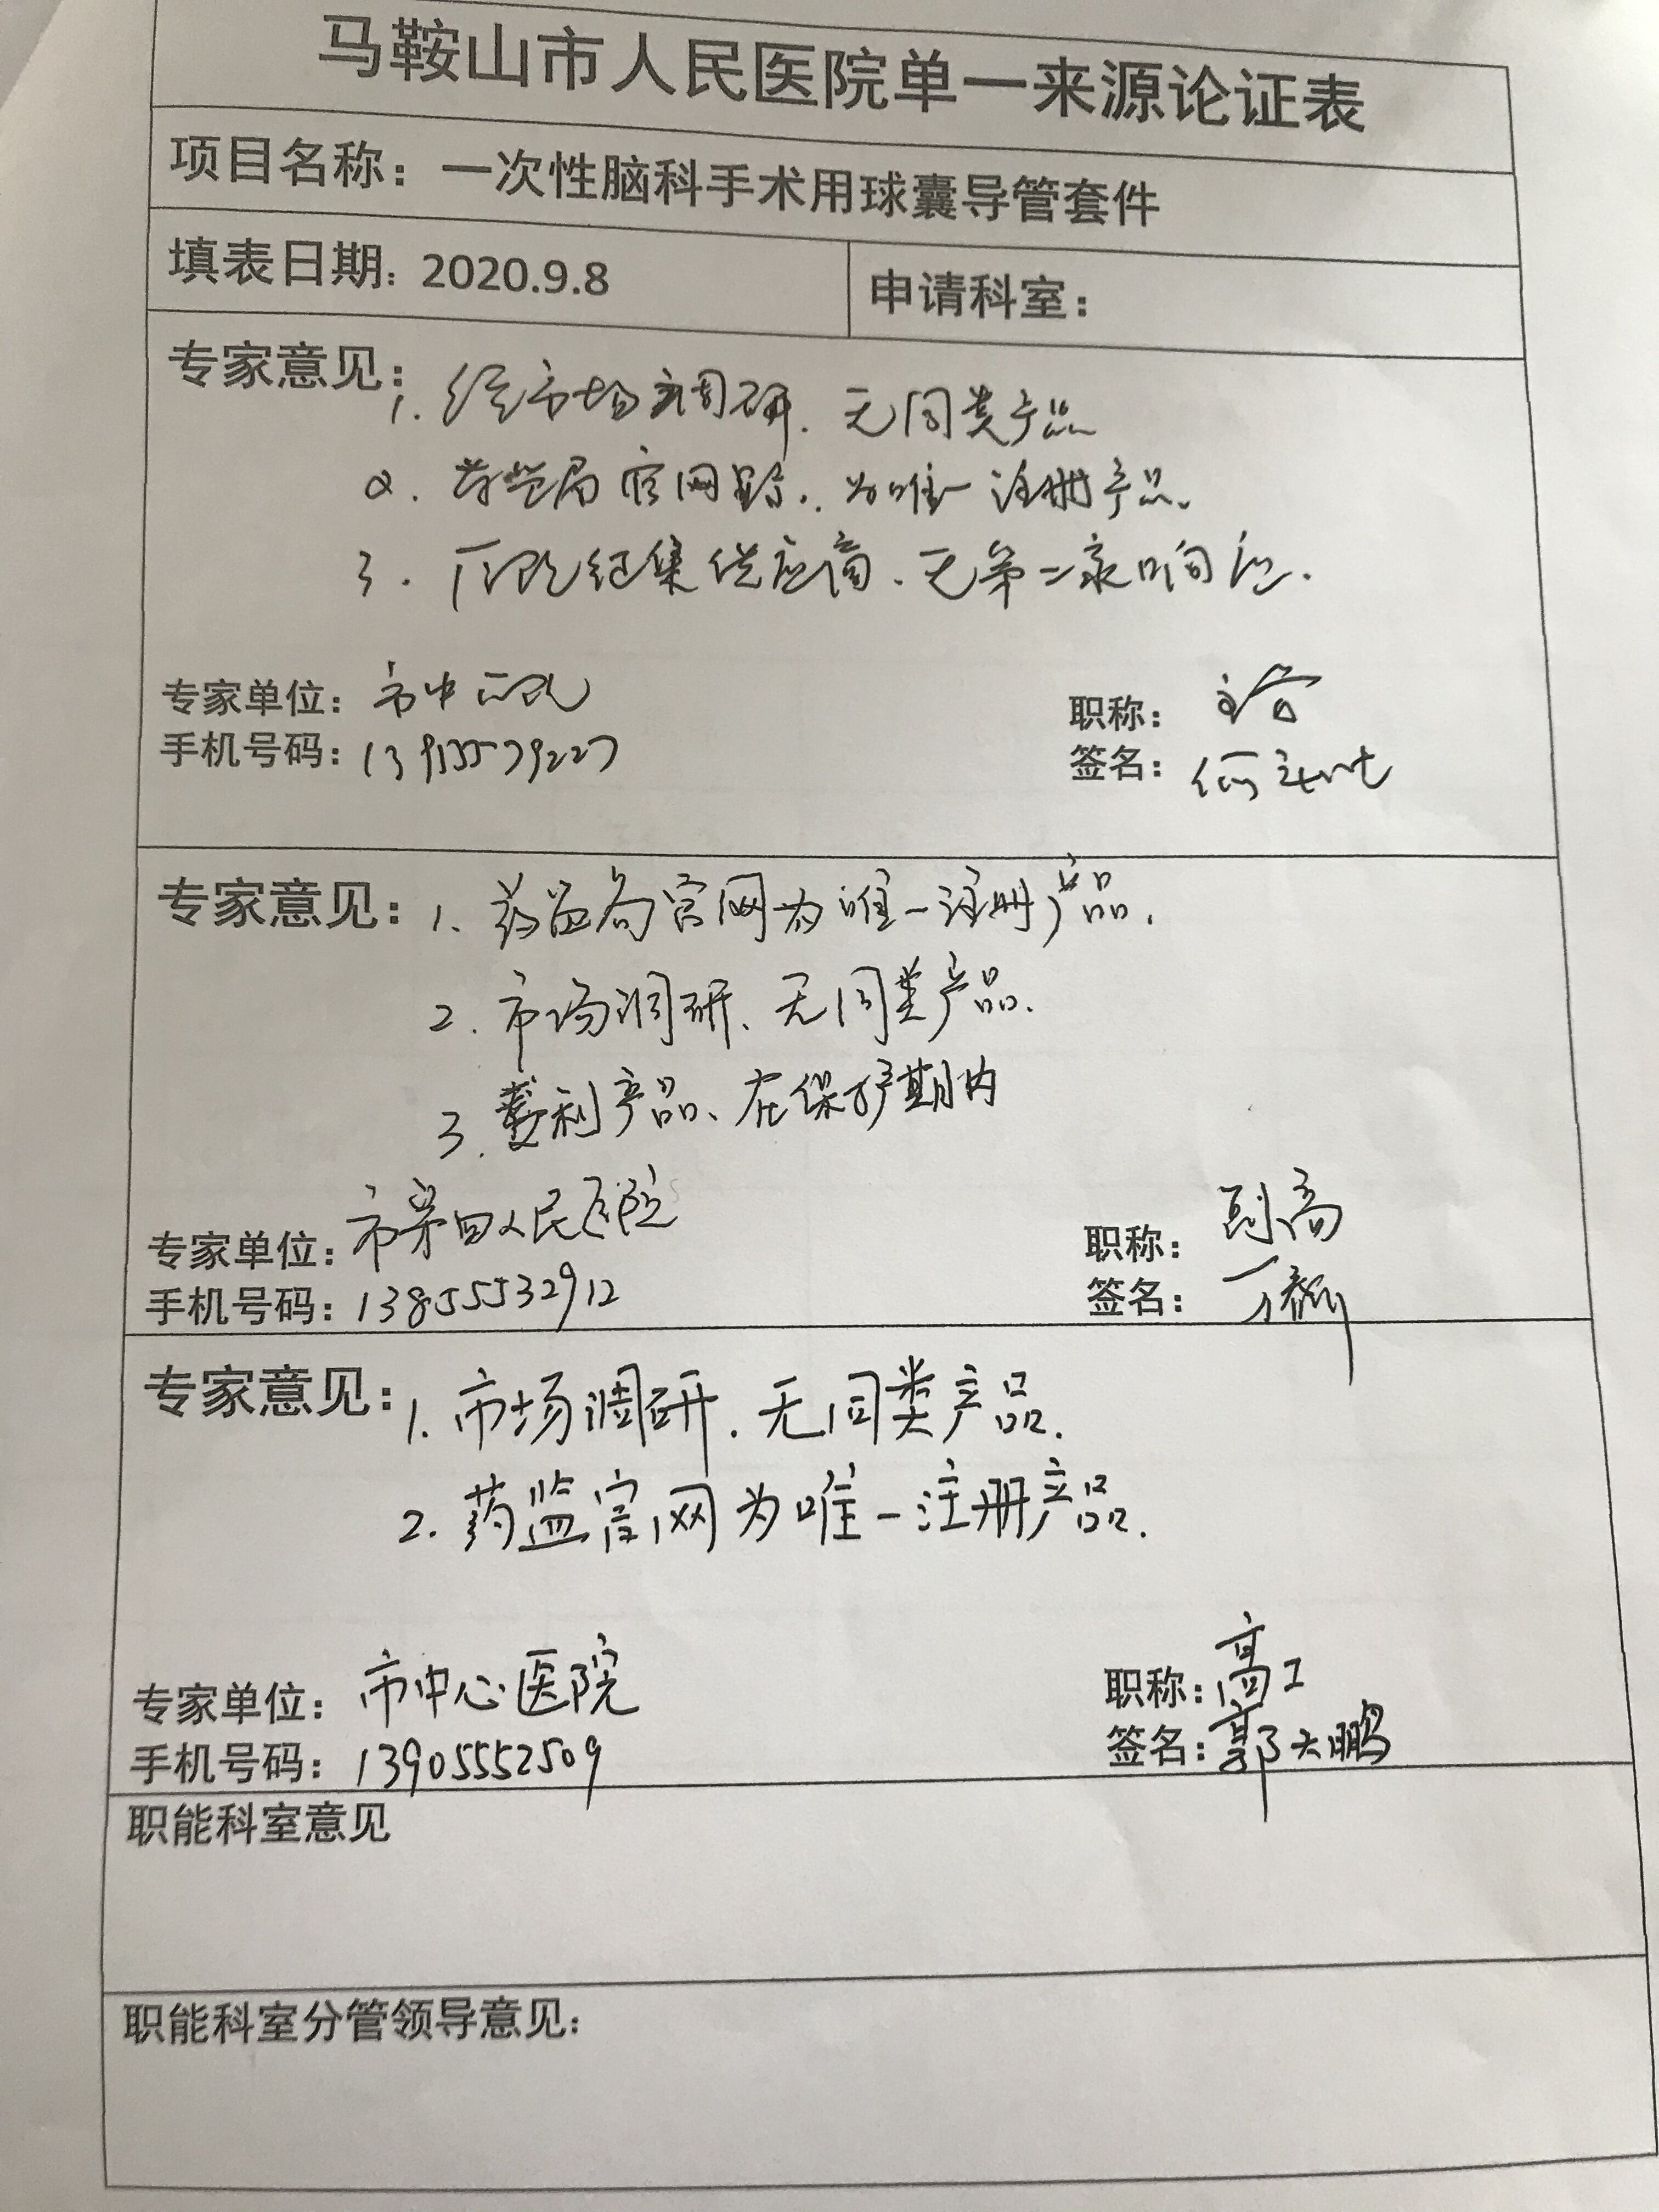 马鞍山市人民医院单一来源论证表
项目名称：一次性脑科手术用球囊导管套件
填表日期：2020.9.8
申请科室：
专家意见：
1. 经市场调研、无同类产品
2. 药监局官网显示、为唯一注册产品、
3. 医院征集供应商、无第二家响应.
专家单位：市中医院
职称：
手机号码：
签名：
专家意见：1、药监局官网为唯一注册产品.
2. 市场调研、无同类产品.
3. 专利产品、在保护期内
专家单位：市第四人民医院
职称：副高
手机号码：13855532912
签名：
专家意见：1. 市场调研. 无同类产品.
2. 药监官网为唯一注册产品.
专家单位：市中心医院
职称：高工
手机号码：13905552509
签名：郭大鹏
职能科室意见
职能科室分管领导意见：